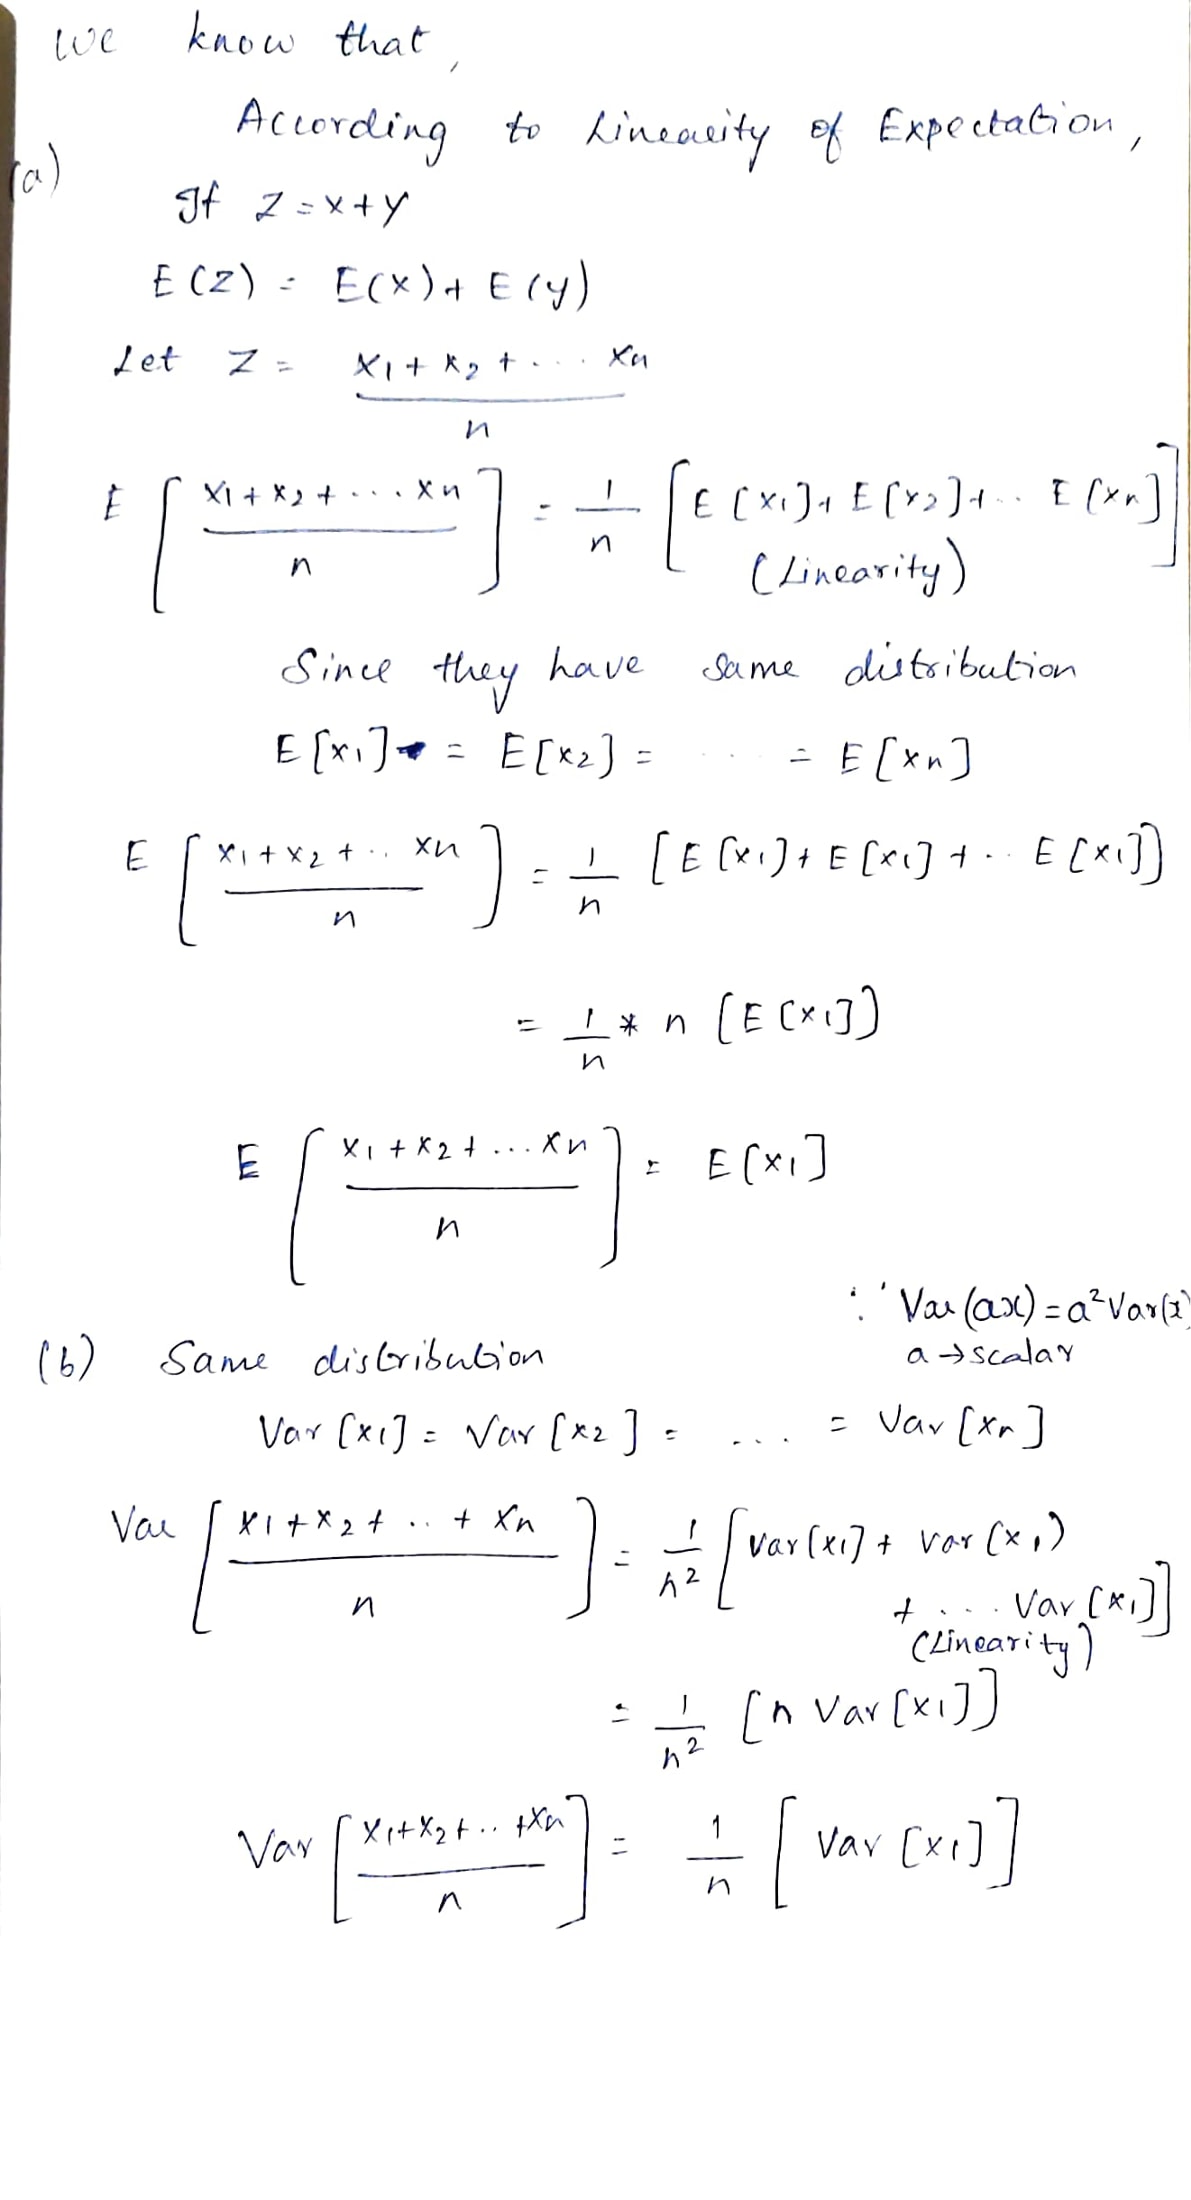 we know that,
According to Linearity of Expectation,
(a)
If Z = x+y
E(Z) = E(x) + E(y)
Let Z = x1 + x2 + ... xn / n
E [ x1 + x2 + ... xn / n ] = 1/n [ E[x1] + E[x2] + .. E[xn] ]
(Linearity)
Since they have same distribution
E[x1] = E[x2] = ... = E[xn]
E [ x1 + x2 + .. xn / n ] = 1/n [ E[x1] + E[x1] + .. E[x1] ]
= 1/n * n [E[x1]]
E [ x1 + x2 + ... xn / n ] = E[x1]
∵ Var(ax) = a²Var(x)
(b) Same distribution
a → scalar
Var[x1] = Var[x2] = ... = Var[xn]
Var [ x1 + x2 + .. + xn / n ] = 1/n² [ Var[x1] + Var(x1)
+ ... Var[x1] ]
(Linearity)
= 1/n² [n Var[x1]]
Var [ x1 + x2 + .. + xn / n ] = 1/n [ Var[x1] ]